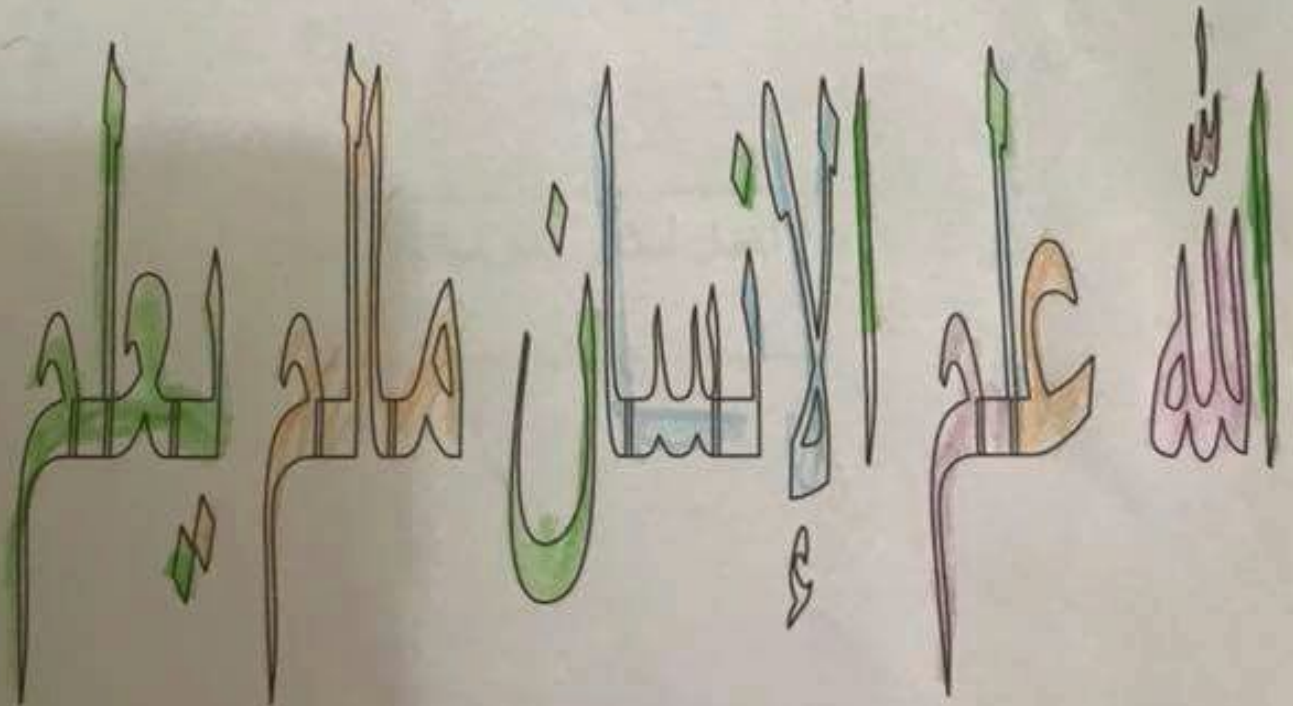 الله علم الإنسان مالم يعلم